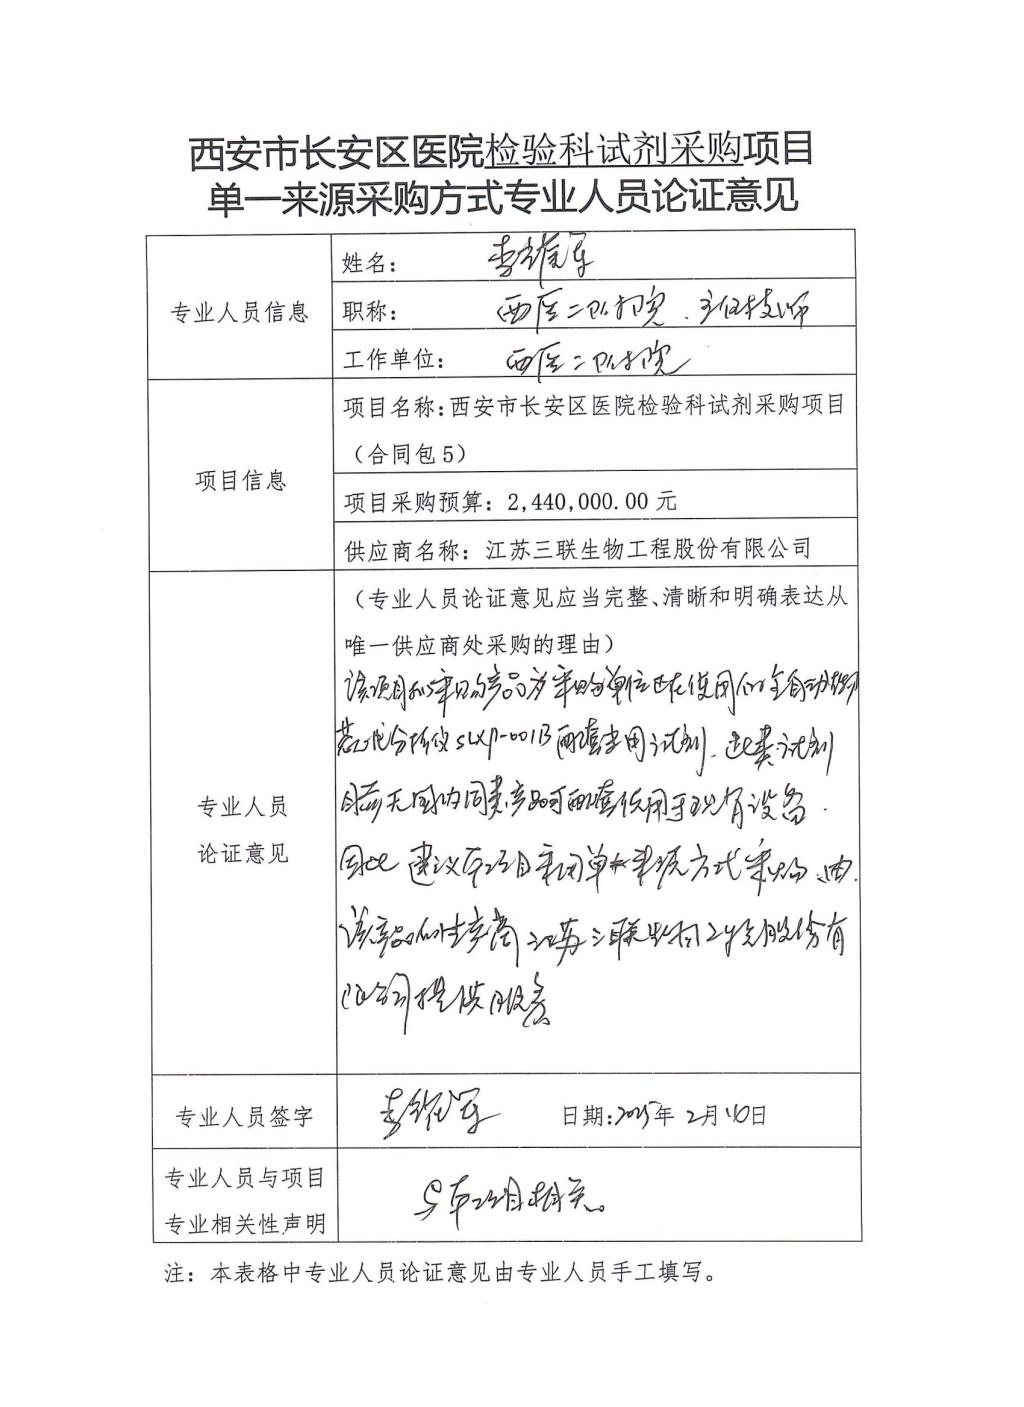 西安市长安区医院检验科试剂采购项目
单一来源采购方式专业人员论证意见
专业人员信息
姓名：
职称： 西医二附院、主任技师
工作单位： 西医二附院
项目信息
项目名称：西安市长安区医院检验科试剂采购项目
（合同包5）
项目采购预算：2,440,000.00元
供应商名称：江苏三联生物工程股份有限公司
专业人员
论证意见
（专业人员论证意见应当完整、清晰和明确表达从
唯一供应商处采购的理由）
该项目拟采购的产品为采购单位正在使用的全自动
分析仪SLXP-001B配套专用试剂，此类试剂
目前无国内同类产品可配套使用于现有设备。
因此建议本项目采用单一来源方式采购，由
该产品的生产商江苏三联生物工程股份有
限公司提供服务
专业人员签字
日期：2025年2月10日
专业人员与项目
专业相关性声明
与本项目相关。
注：本表格中专业人员论证意见由专业人员手工填写。